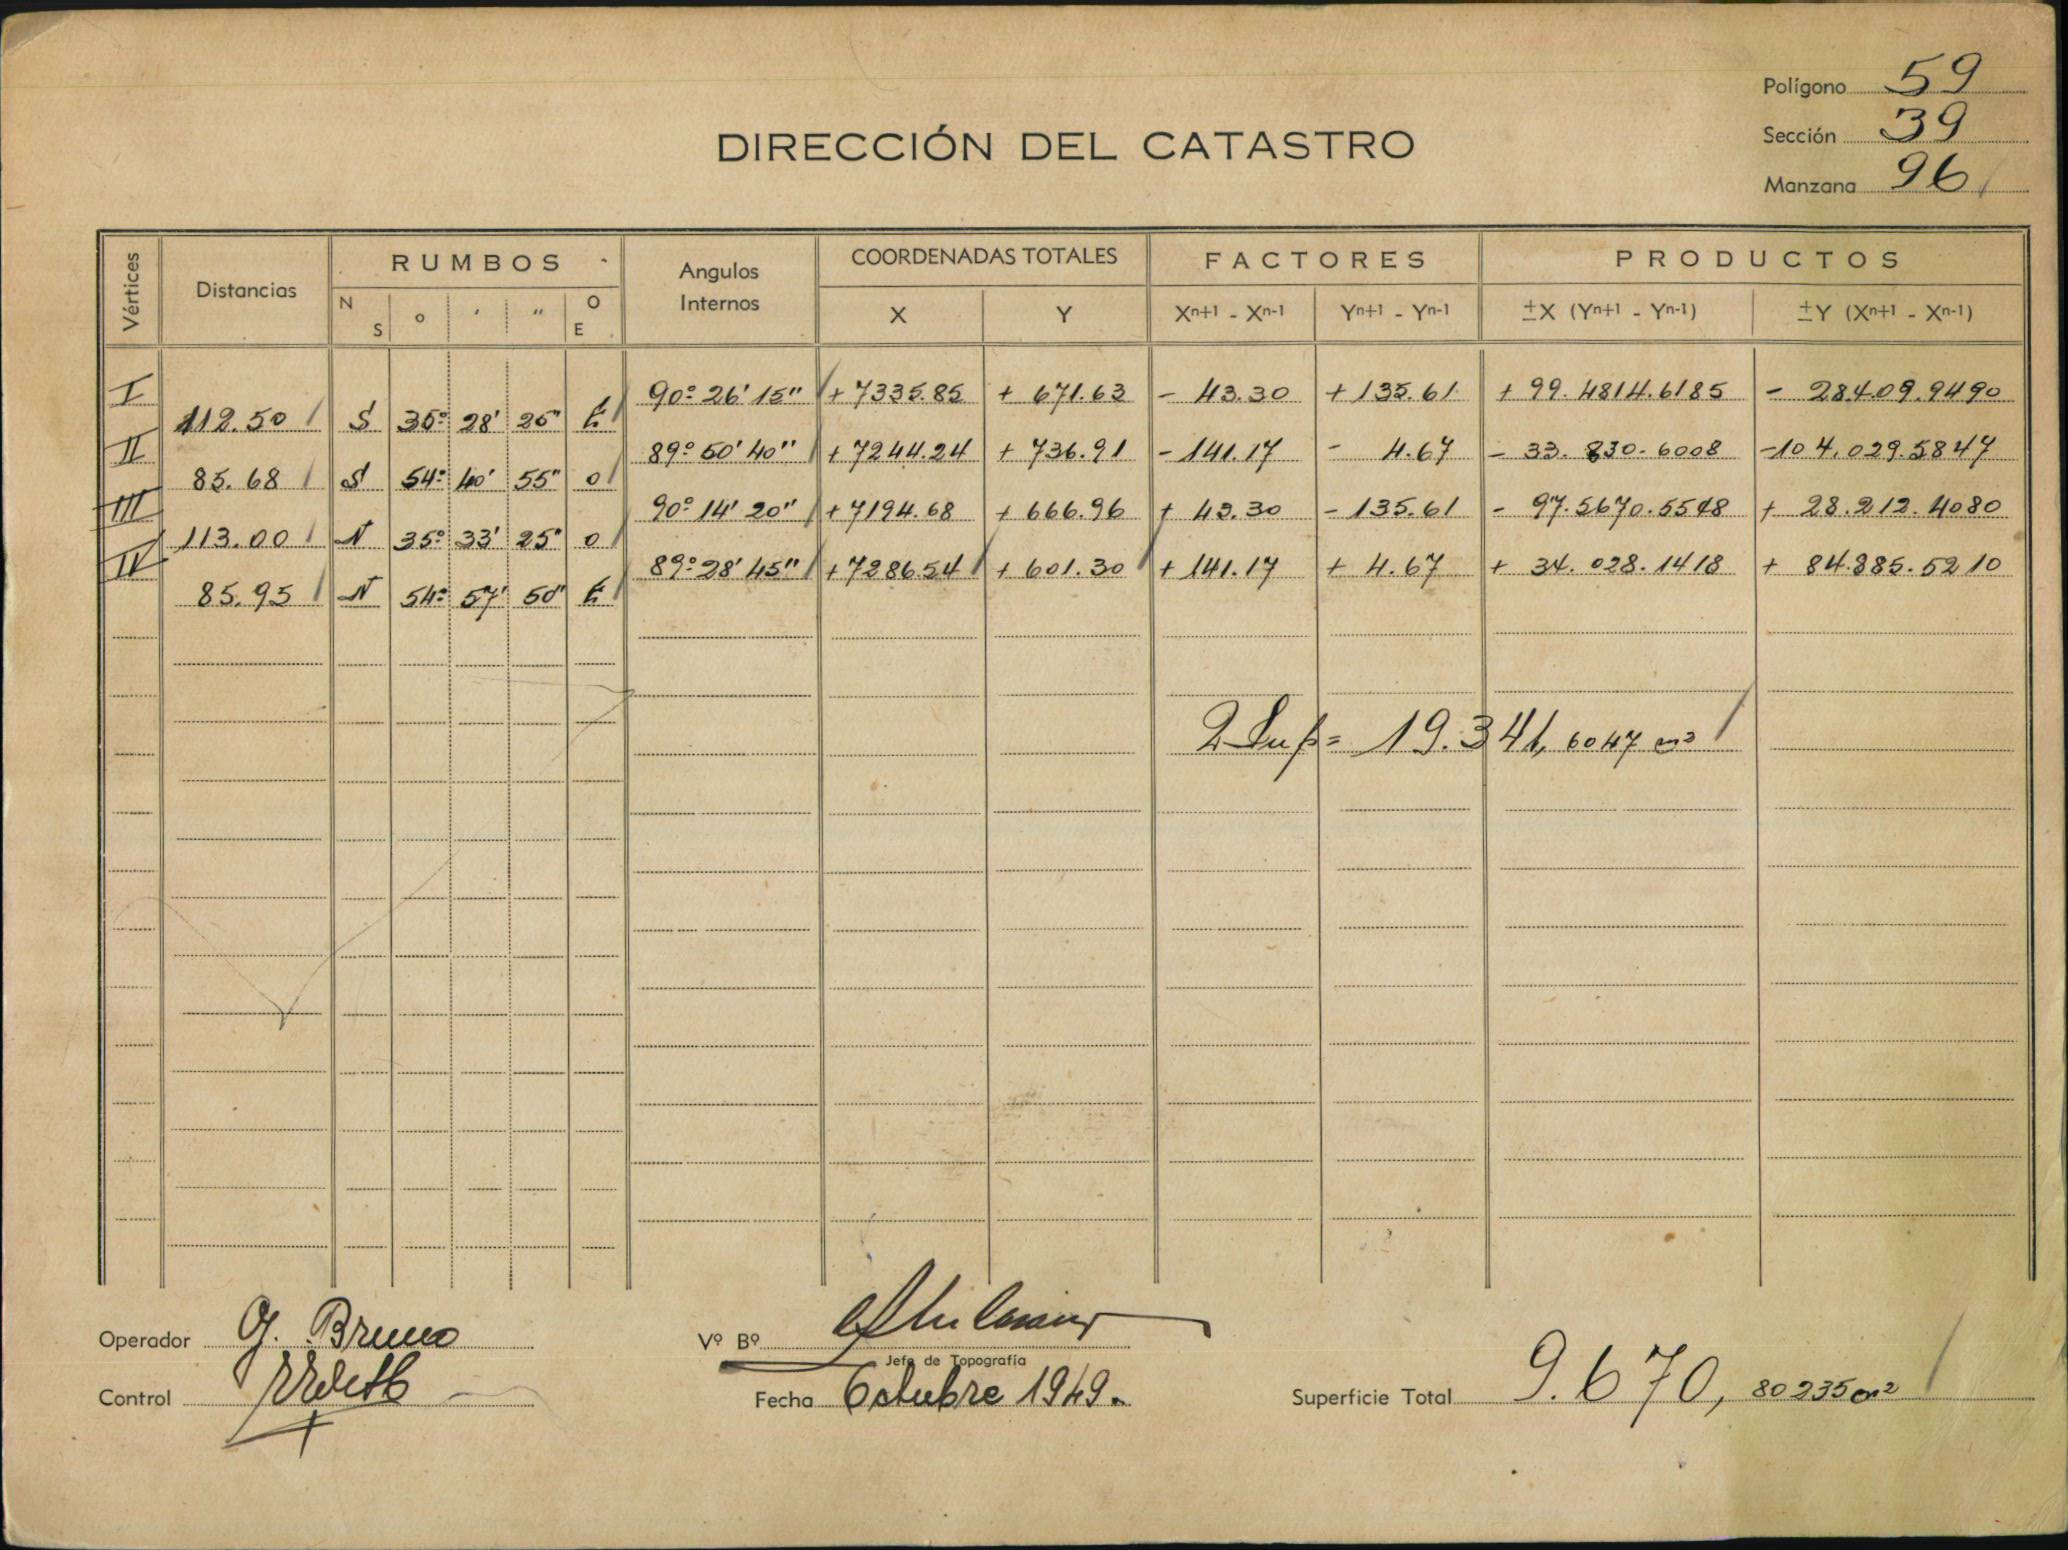 Polígono 59
Sección 39
Manzana 96
DIRECCIÓN DEL CATASTRO
Vértices Distancias RUMBOS Angulos Internos COORDENADAS TOTALES FACTORES PRODUCTOS
N S o ' " O E X Y Xn+1 - Xn-1 Yn+1 - Yn-1 ±X (Yn+1 - Yn-1) ±Y (Xn+1 - Xn-1)
I 90º 26' 15" + 7335.85 + 671.63 - 43.30 + 135.61 + 99.4814.6185 - 28409.9490
112.50 S 35º 28' 25" E
II 89º 50' 40" + 7244.24 + 736.91 - 141.17 - 4.67 - 33.830.6008 - 104.029.5847
85.68 S 54º 40' 55" O
III 90º 14' 20" + 7194.68 + 666.96 + 43.30 - 135.61 - 97.5670.5548 + 28.212.4080
113.00 N 35º 33' 25" O
IV 89º 28' 45" + 7286.54 + 601.30 + 141.17 + 4.67 + 34.028.1418 + 84.885.5210
85.95 N 54º 57' 50" E
2 Sup = 19.341,6047 m2
Operador G. Bruno
Vº Bº
Jefe de Topografía
Control
Fecha Octubre 1949.
Superficie Total 9.670,80235 m2